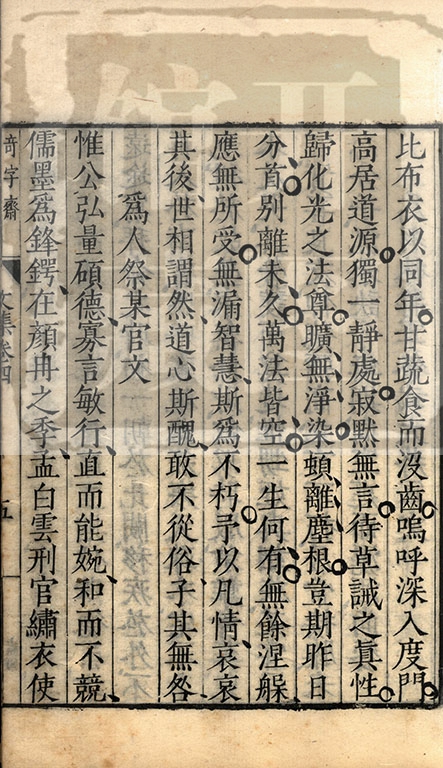 比布衣以同年甘蔬食而沒齒嗚呼深入度門
高居道源獨一靜處寂默無言待草誡之眞性
歸化光之法尊曠無淨染頓離塵根豈期昨日
分首別離未久萬法皆空一生何有無餘涅躶
應無所受無漏智慧斯爲不朽予以凡情哀哀
其後世相謂然道心斯醜敢不從俗子其無咎
爲人祭某官文
惟公弘量碩德寡言敏行直而能婉和而不競
儒墨爲鋒鍔在顏冉之季孟白雲刑官繡衣使
奇字齋
文集卷四
五